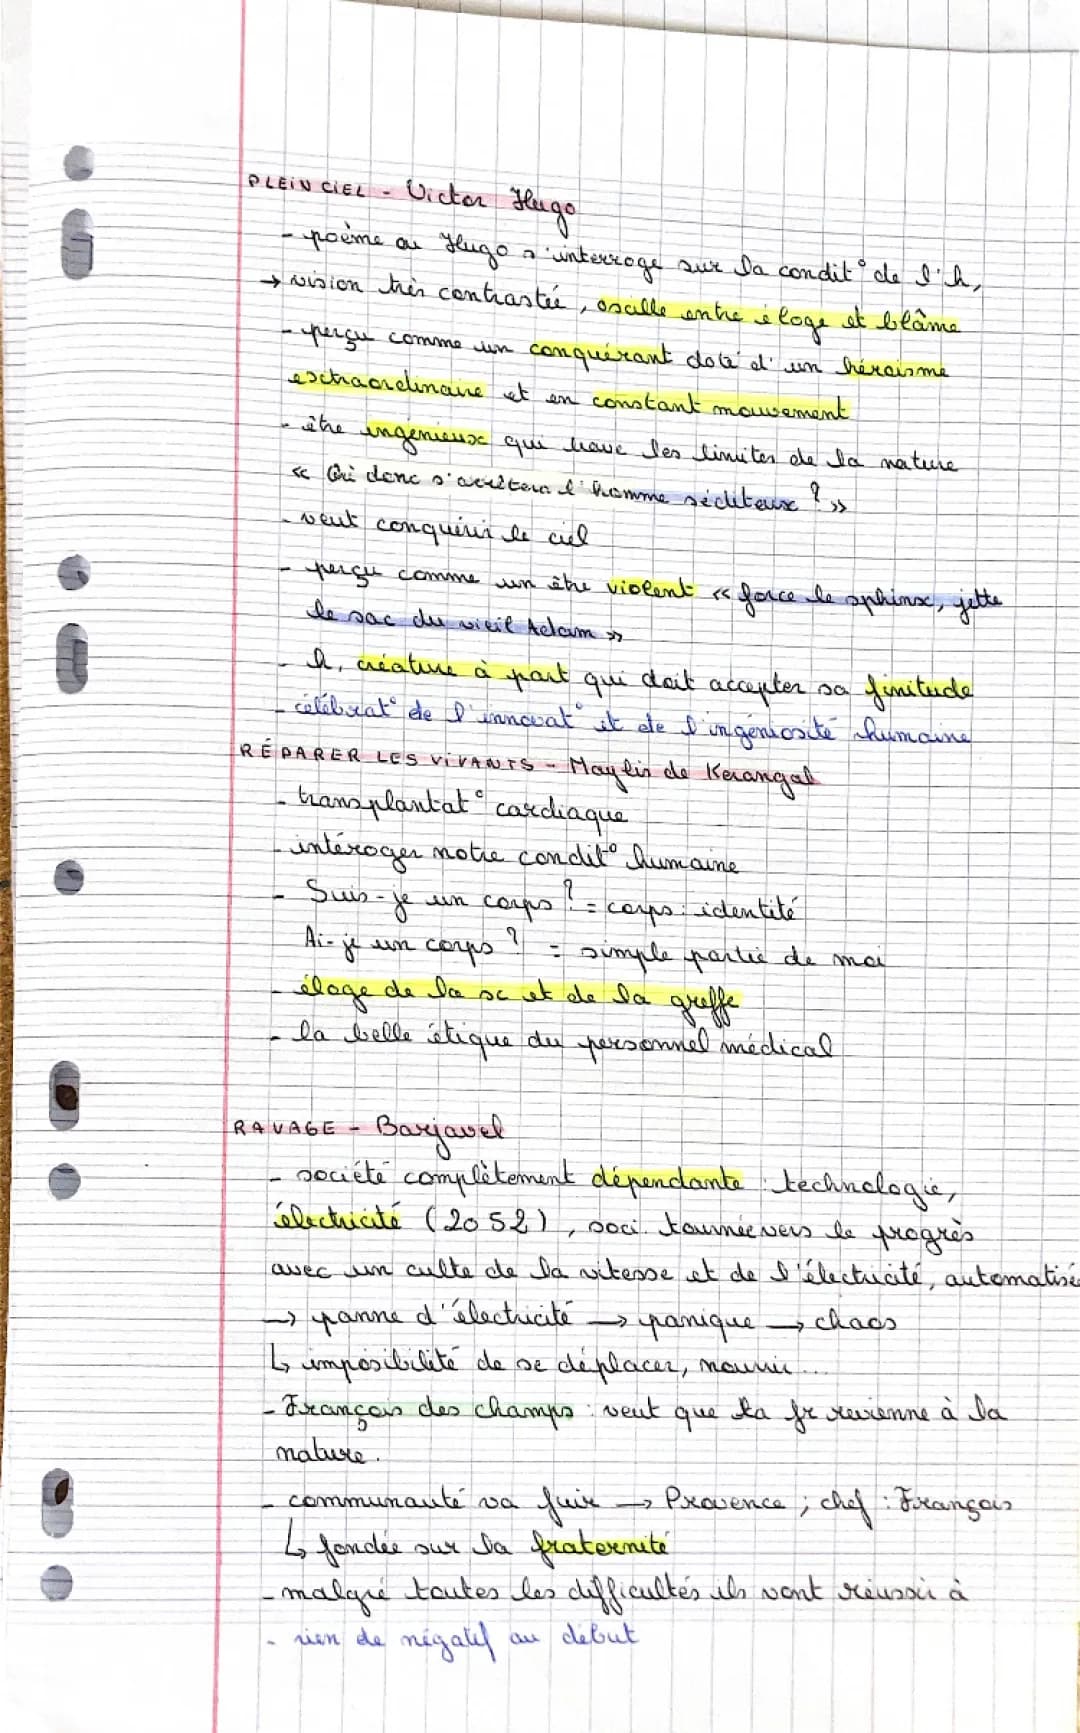 PLEIN CIEL - Victor Hugo
- poème ou Hugo s'interroge sur la condit° de l'h,
→ vision très contrastée, oscille entre éloge et blâme
- perçu comme un conquérant doté d'un héroïsme
extraordinaire et en constant mouvement
- être ingénieux qui brave les limites de la nature
« Qui donc s'arrêtera l'homme séditeux ? »
- veut conquérir le ciel
- perçu comme un être violent « force le sphinx, jette
le sac du vieil Adam »
- h, créature à part qui doit accepter sa finitude
- célébrat° de l'innovat° et de l'ingéniosité humaine
RÉPARER LES VIVANTS - Maylis de Kerangal
- transplantat° cardiaque
- intéroger notre condit° humaine
- Suis-je un corps ? = corps : identité
Ai-je un corps ? = simple partie de moi
- éloge de la sc et de la greffe
- la belle étique du personnel médical
RAVAGE - Barjavel
- société complètement dépendante : technologie,
électricité (2052), soci. tournée vers le progrès
avec un culte de la vitesse et de l'électricité, automatisée
→ panne d'électricité → panique → chaos
↳ imposibilité de se déplacer, nourrir...
- François des champs : veut que la fr revienne à la
nature.
- communauté va fuir → Provence ; chef : François
↳ fondée sur la fraternité
- malgré toutes les difficultés ils vont réussir à
- rien de négatif au début